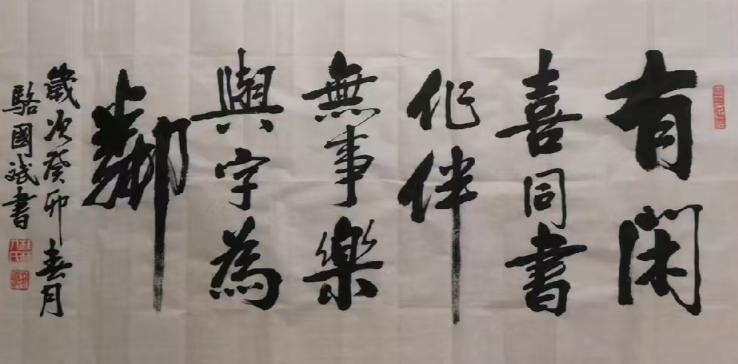 有闲
喜同書
作伴
無事樂
與字為
鄰
歲次癸卯春月
駱國斌書